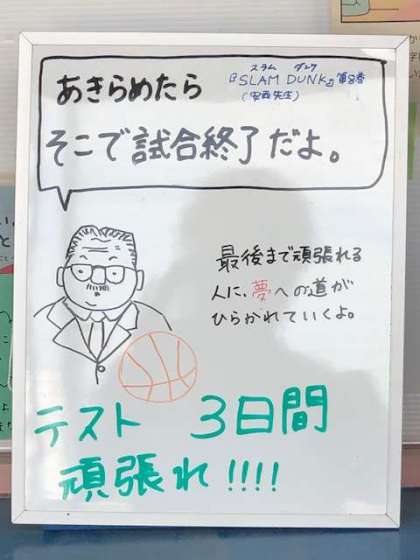 あきらめたら
スラム ダンク
『SLAM DUNK』第8巻
(安西先生)
そこで試合終了だよ。
最後まで頑張れる
人に、夢への道が
ひらかれていくよ。
テスト 3日間
頑張れ!!!!